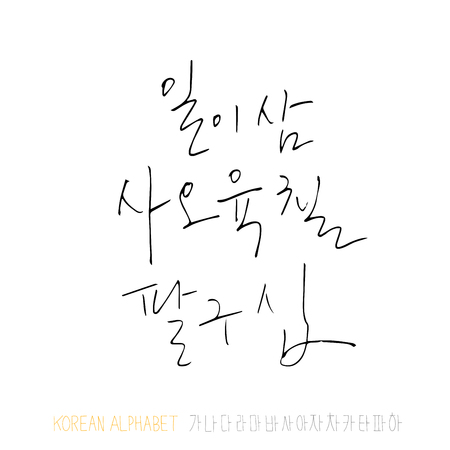 일이삼
사오육칠
팔구십
KOREAN ALPHABET 가나다라마바사아자차카타파하